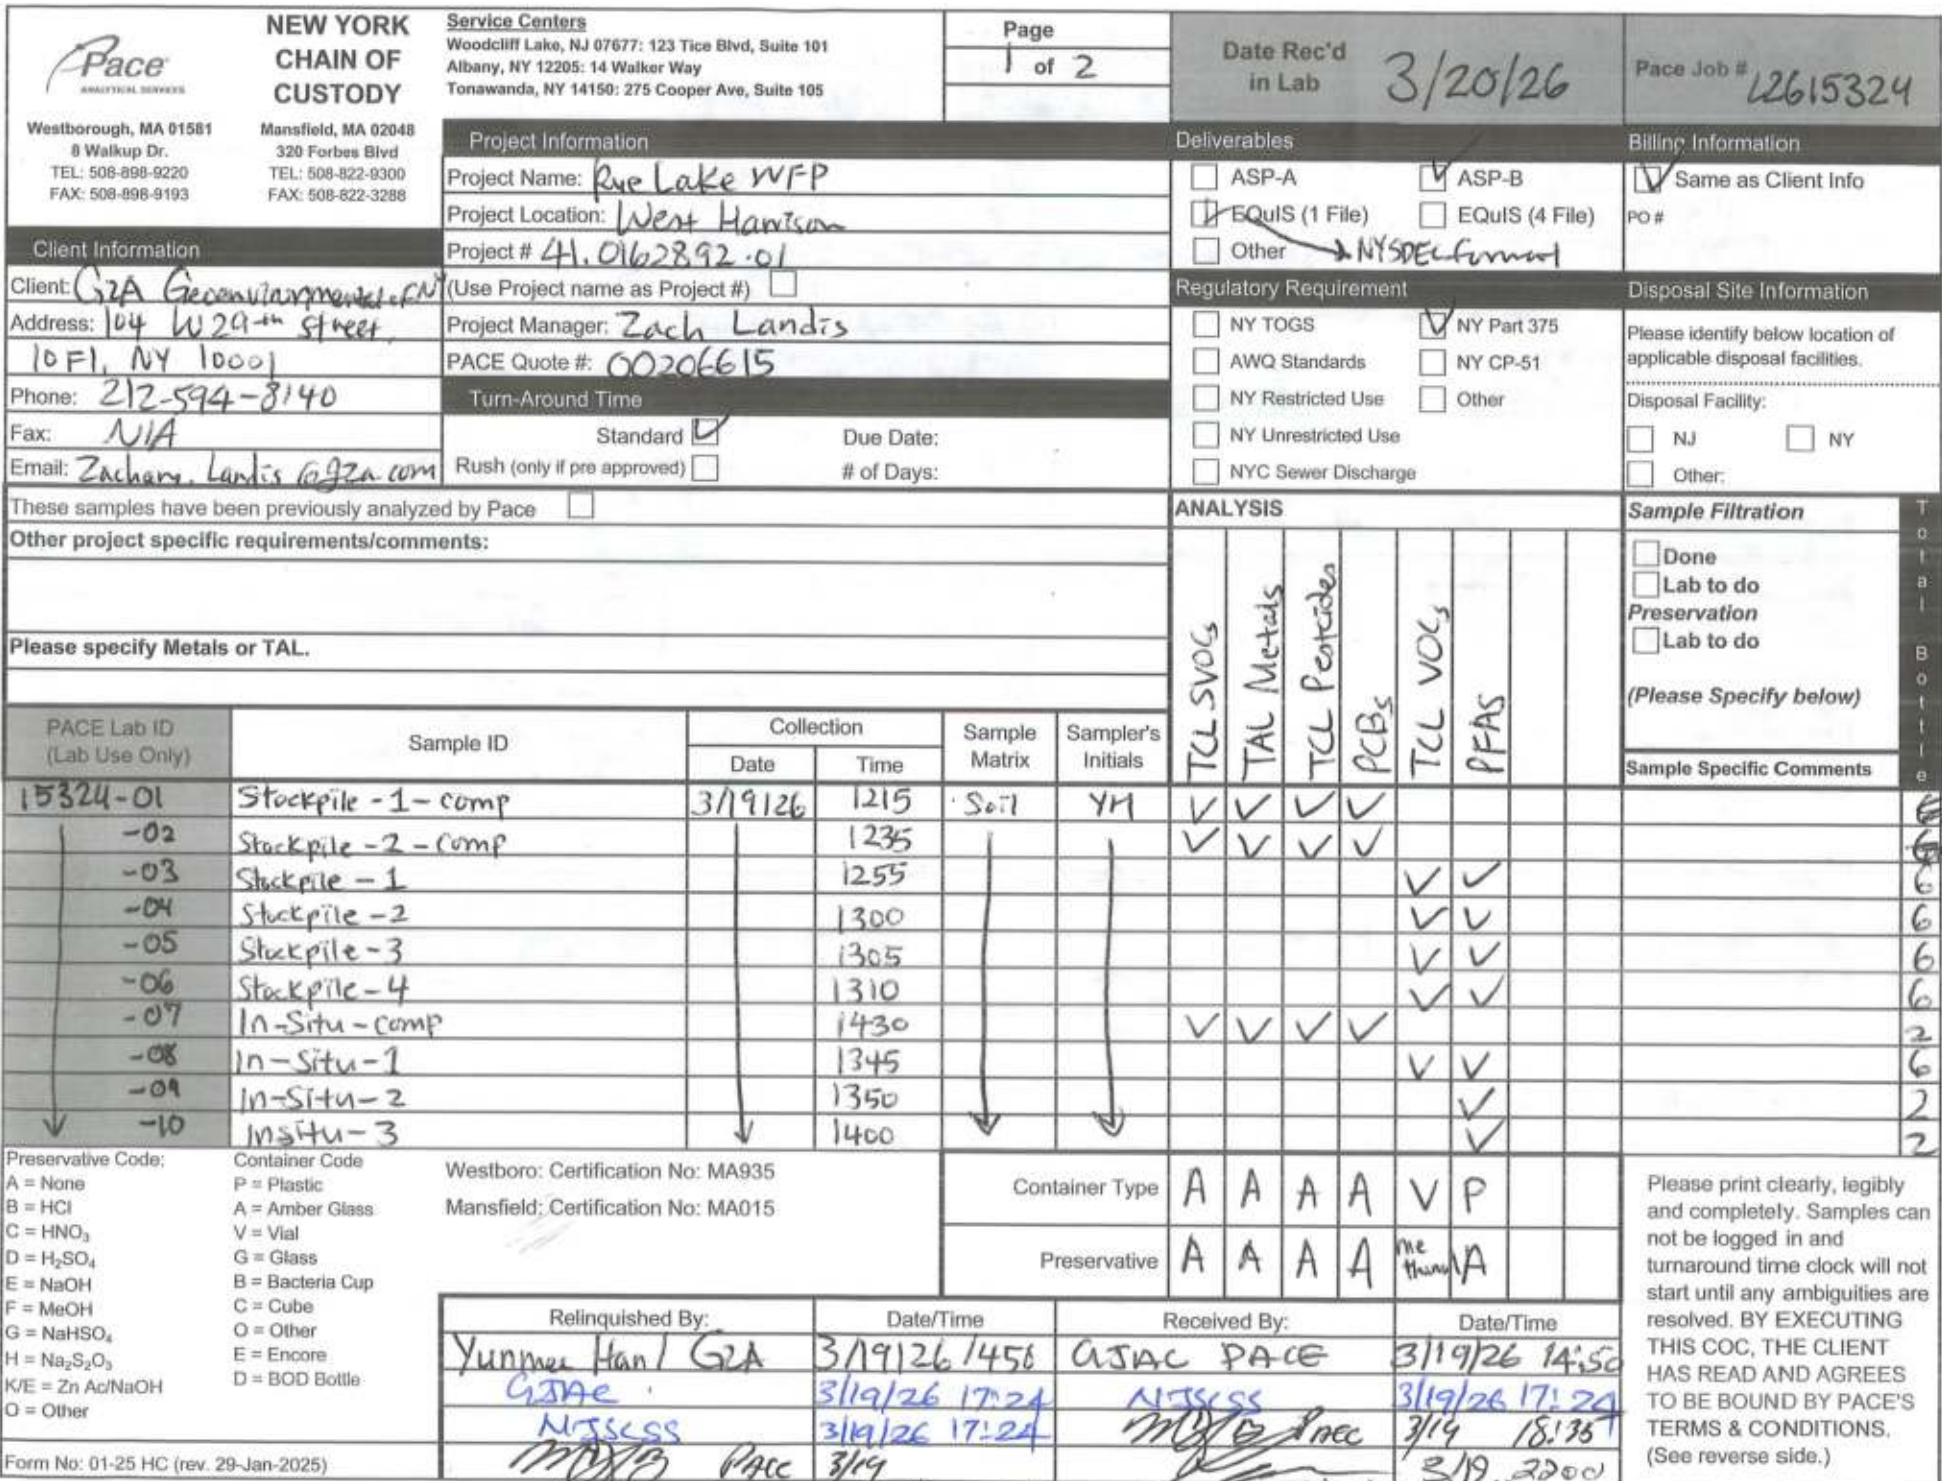 Pace
ANALYTICAL SERVICES
Westborough, MA 01581
8 Walkup Dr.
TEL: 508-898-9220
FAX: 508-898-9193
NEW YORK
CHAIN OF
CUSTODY
Mansfield, MA 02048
320 Forbes Blvd
TEL: 508-822-9300
FAX: 508-822-3288
Service Centers
Woodcliff Lake, NJ 07677: 123 Tice Blvd, Suite 101
Albany, NY 12205: 14 Walker Way
Tonawanda, NY 14150: 275 Cooper Ave, Suite 105
Page
1 of 2
Date Rec'd
in Lab
3/20/26
Pace Job # L2615324
Project Information
Project Name: Rye Lake WFP
Project Location: West Harrison
Project # 41.0162892.01
(Use Project name as Project #)
Project Manager: Zach Landis
PACE Quote #: 00206615
Turn-Around Time
Standard
Due Date:
Rush (only if pre approved)
# of Days:
Client Information
Client: GZA Geoenvironmental of NY
Address: 104 W 29th Street,
10 Fl, NY 10001
Phone: 212-594-8140
Fax: N/A
Email: Zachary.Landis@gza.com
Deliverables
ASP-A ASP-B
EQuIS (1 File) EQuIS (4 File)
Other NYSDEC format
Regulatory Requirement
NY TOGS NY Part 375
AWQ Standards NY CP-51
NY Restricted Use Other
NY Unrestricted Use
NYC Sewer Discharge
Billing Information
Same as Client Info
PO #
Disposal Site Information
Please identify below location of
applicable disposal facilities.
Disposal Facility:
NJ NY
Other:
These samples have been previously analyzed by Pace
Other project specific requirements/comments:
Please specify Metals or TAL.
ANALYSIS
TCL SVOCs
TAL Metals
TCL Pesticides
PCBs
TCL VOCs
PFAS
Sample Filtration
Done
Lab to do
Preservation
Lab to do
(Please Specify below)
Sample Specific Comments
Total Bottle
PACE Lab ID
(Lab Use Only)
Sample ID
Collection
Date Time
Sample
Matrix
Sampler's
Initials
15324-01 Stockpile-1-comp 3/19/26 1215 Soil YH ✓ ✓ ✓ ✓
-02 Stockpile-2-comp 1235 ✓ ✓ ✓ ✓
-03 Stockpile-1 1255 ✓ ✓ 6
-04 Stockpile-2 1300 ✓ ✓ 6
-05 Stockpile-3 1305 ✓ ✓ 6
-06 Stockpile-4 1310 ✓ ✓ 6
-07 In-Situ-comp 1430 ✓ ✓ ✓ ✓ 2
-08 In-Situ-1 1345 ✓ ✓ 6
-09 In-Situ-2 1350 ✓ 2
-10 Insitu-3 1400 ✓ 2
Preservative Code:
A = None
B = HCl
C = HNO3
D = H2SO4
E = NaOH
F = MeOH
G = NaHSO4
H = Na2S2O3
K/E = Zn Ac/NaOH
O = Other
Container Code
P = Plastic
A = Amber Glass
V = Vial
G = Glass
B = Bacteria Cup
C = Cube
O = Other
E = Encore
D = BOD Bottle
Westboro: Certification No: MA935
Mansfield: Certification No: MA015
Container Type A A A A V P
Preservative A A A A methanol A
Relinquished By: Date/Time Received By: Date/Time
Yunmee Han / GZA 3/19/26 1450 GJAC PACE 3/19/26 14:50
GJAC 3/19/26 17:24 NJSCSS 3/19/26 17:24
NJSCSS 3/19/26 17:24 PACE 3/19 18:35
PACE 3/19 3/19 2200
Please print clearly, legibly
and completely. Samples can
not be logged in and
turnaround time clock will not
start until any ambiguities are
resolved. BY EXECUTING
THIS COC, THE CLIENT
HAS READ AND AGREES
TO BE BOUND BY PACE'S
TERMS & CONDITIONS.
(See reverse side.)
Form No: 01-25 HC (rev. 29-Jan-2025)